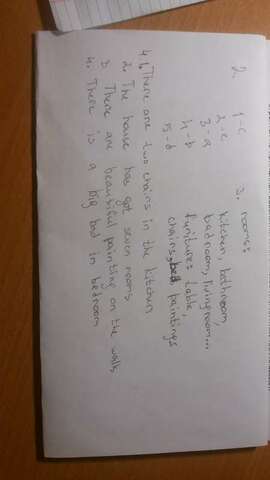 2. 1-c
2-e
3-a
4-b
5-d
3. rooms:
kitchen, bathroom,
badroom, livingroom...
furnitures: table,
chairs, bed paintings
4. 1. There are two chairs in the kitchen
2. The house has got seven rooms
3. There are beautiful painting on the walls
4. There is a big bad in bedroom